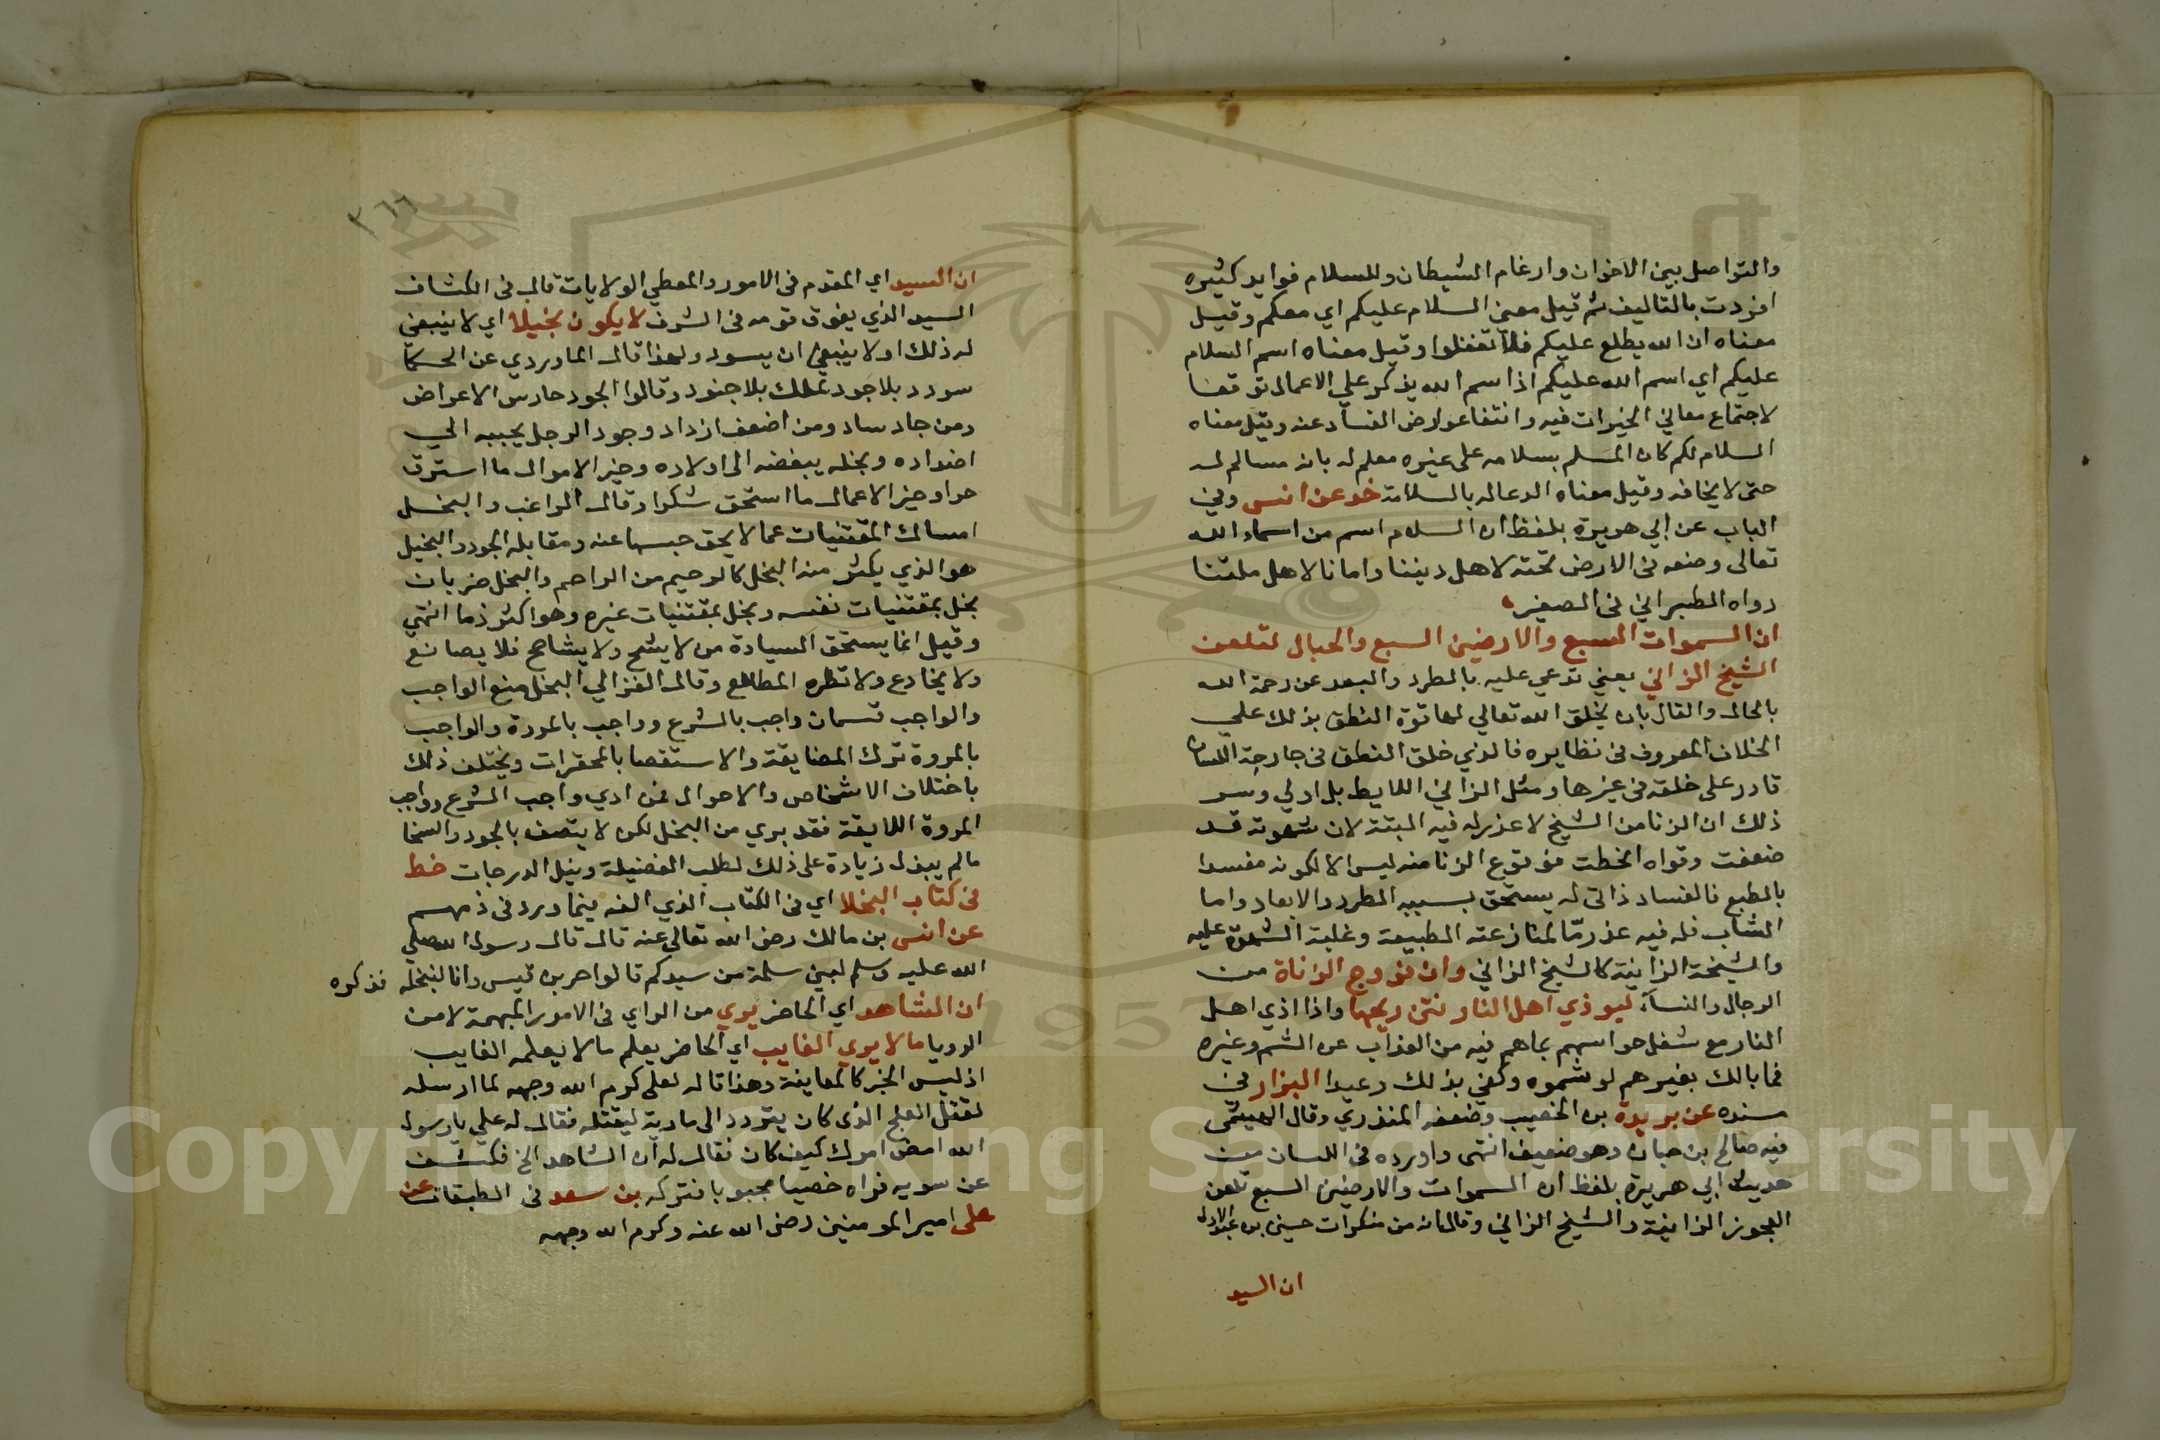 والتواصل بين الاخوان وارغام الشيطان وللسلام فوايد كثيره
افردت بالتاليف ثم قيل معنى السلام عليكم اي معكم وقيل
معناه ان الله يطلع عليكم فلا تغفلوا وقيل معناه اسم السلام
عليكم اي اسم الله عليكم اذا سم الله يذكر علي الاعمال توقعا
لاجتماع معاني الخيرات فيه وانتفا عوارض الفساد عنه وقيل معناه
السلام لكم كان المسلم بسلامه على غيره معلم له بانه مسالم له
حتى لا يخافه وقيل معناه الدعا له بالسلامة خد عن انس وفي
الباب عن ابي هريرة بلفظ ان السلام اسم من اسماء الله
تعالى وضعه في الارض تحته لاهل ديننا وامانا لاهل ملتنا
رواه الطبراني في الصغير
ان السموات السبع والارضين السبع والجبال لتلعن
الشيخ الزاني يعني تدعي عليه بالطرد والبعد عن رحمة الله
بالحال والقال بان يخلق الله تعالي لها قوة النطق بذلك علي
الخلاف المعروف في نظايره فالذي خلق النطق في جارحة اللسان
قادر على خلقه في غيرها ومثل الزاني اللايط بل اولي وسر
ذلك ان الزنا من الشيخ لا عذر له فيه البتة لان شهوته قد
ضعفت وقواه انحطت فوقوع الزنا منه ليس الا لكونه مفسدا
بالطبع فالفساد ذاتي له يستحق بسببه الطرد والابعاد واما
الشاب فله فيه عذر ما لمنازعة الطبيعة وغلبة الشهوة عليه
والشيخة الزانية كالشيخ الزاني وان فروج الزناة من
الرجال والنساء ليوذي اهل النار نتن ريحها واذا اذي اهل
النار مع شغل حواسهم بما هم فيه من العذاب عن الشم وغيره
فما بالك بغيرهم لو شموه وكفي بذلك وعيدا البزار في
مسنده عن بريدة بن الخصيب وضعفه المنذري وقال الهيثمي
فيه صالح بن حبان وهو ضعيف انتهى واورده في اللسان من
حديث ابي هريرة بلفظ ان السموات والارضين السبع تلعن
العجوز الزانية والشيخ الزاني وقال انه من منكرات حسين بن عبد الاول
ان السيد
٣٦٦
ان السيد اي المقدم في الامور والمعطي الولايات قال في الكشاف
السيد الذي يفوق قومه في الشرف لا يكون بخيلا اي لا ينبغي
له ذلك او لا ينبغي ان يسود ولهذا قال الماوردي عن الحكما
سودد بلا جود كملك بلا جنود وقالوا الجود حارس الاعراض
ومن جاد ساد ومن اضعف ازداد وجود الرجل يحببه الي
اضداده وبخله يبغضه الى اولاده وخير الاموال ما استرق
حرا وخير الاعمال ما استحق شكرا وقال الراغب والبخل
امساك المقتنيات عما لا يحق حبسها عنه ومقابله الجود والبخيل
هو الذي يكثر منه البخل كالرحيم من الراحم والبخل ضربان
بخل بمقتنيات نفسه وبخل بمقتنيات غيره وهو اكثر ذما انتهي
وقيل انما يستحق السيادة من لا يشح ولا يشاحح فلا يصانع
ولا يخادع ولا تطره المطامع وقال الغزالي البخل منع الواجب
والواجب قسمان واجب بالشرع وواجب بالمروة والواجب
بالمروة ترك المضايقة والاستقصا بالمحقرات ويختلف ذلك
باختلاف الاشخاص والاحوال فمن ادي واجب الشرع وواجب
المروة اللايقة فقد بري من البخل لكن لا يتصف بالجود والسخا
ما لم يبذل زيادة على ذلك لطلب الفضيلة ونيل الدرجات خط
في كتاب البخلا اي في الكتاب الذي الفه فيما ورد في ذمهم
عن انس بن مالك رضي الله تعالى عنه قال قال رسول الله صلي
الله عليه وسلم لبني سلمة من سيدكم قالوا حر بن قيس وانا لنبخله فذكره
ان الشاهد اي الحاضر يري من الراي في الامور المبهمة لا من
الرويا ما لا يري الغايب اي الحاضر يعلم ما لا يعلمه الغايب
اذ ليس الخبر كالمعاينة وهذا قاله لعلي كرم الله وجهه لما ارسله
لقتل العلج الذي كان يتردد الى مارية ليقتله فقال له علي يا رسول
الله امض امرك كيف كان فقال له ان الشاهد الخ فكشف
عن سويه فراه خصيا مجبوبا فتركه بن سعد في الطبقات عن
على امير المومنين رضي الله عنه وكرم الله وجهه
Copyright © King Saud University
1957